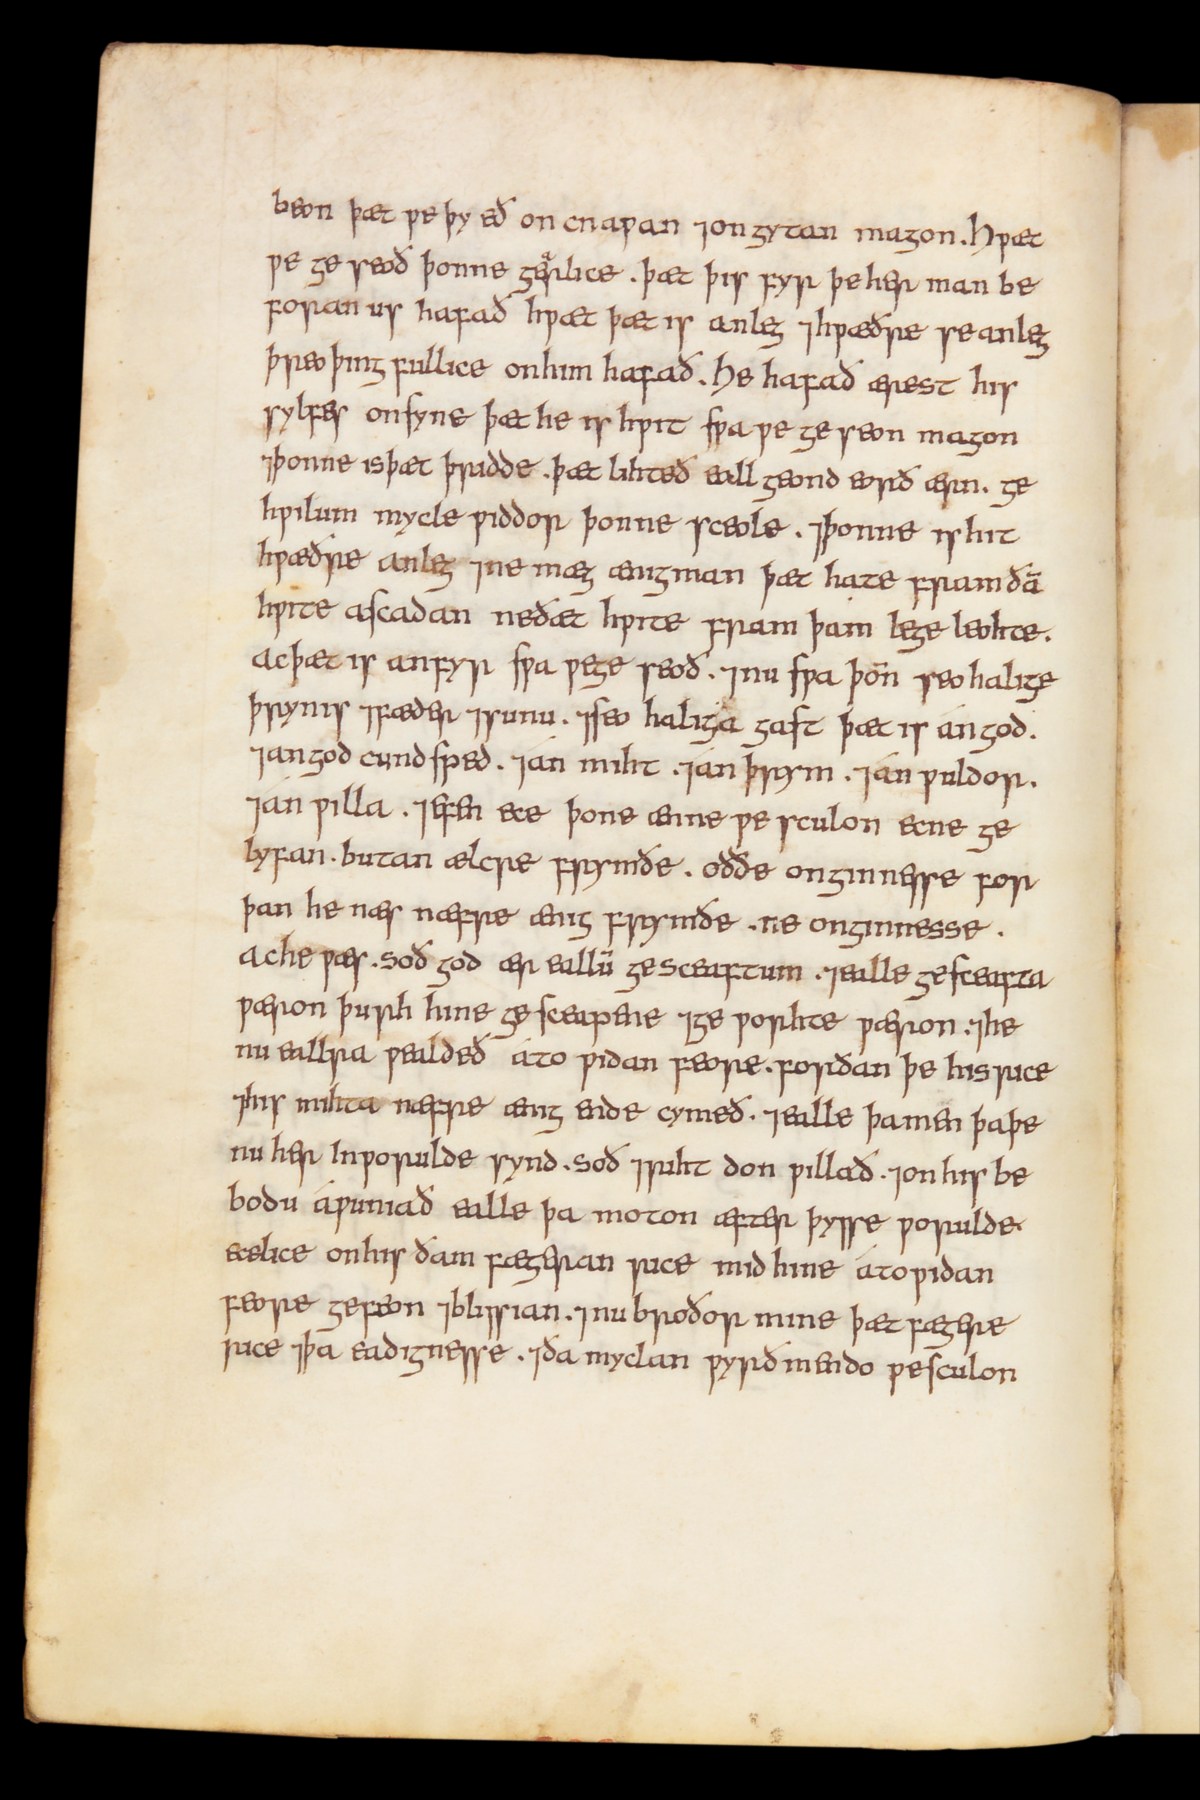 beon þæt ƿe þy eð on cnaƿan ⁊ ongytan magon. Hƿæt
ƿe ge seoð þonne gęrlice . þæt þis fyr þe her man be
foran us hafað hƿæt þæt is anleg ⁊ hƿæðre se anleg
þreo þing fullice on him hafað. He hafað ærest his
sylfes onsyne þæt he is hƿit sƿa ƿe ge seon magon
⁊ þonne is þæt þridde . þæt lihteð eall geond eorð ærn. ge
hƿilum mycle ƿiddor þonne sceole . ⁊ þonne is hit
hƿæðre anleg ⁊ ne mæg ænig man þæt hate fram ðā
hƿite ascadan ne ðæt hƿite fram þam lege leohte.
Ac þæt is an fyr sƿa ƿe ge seoð . ⁊ nu sƿa þoñ seo halige
þrynis ⁊ fæder ⁊ sunu . ⁊ seo haliga gast þæt is án god .
⁊ an god cund sped . ⁊ án miht . ⁊ án þrym . ⁊ án ƿuldor .
⁊ án ƿilla . ⁊ efen ece þone ænne ƿe sculon ecne ge
lyfan . butan ælcre frymðe . oððe onginnesse for
þan he næs næfre ænig frymðe . ne onginnesse .
Ac he ƿæs . soð god ær eallū gesceaftum . ⁊ ealle gesceafta
ƿæron þurh hine ge sceapene ⁊ ge ƿorhte ƿæron . ⁊ he
nu eallra ƿealdeð áto ƿidan feore . forðan þe his rice
⁊ his mihta næfre ænig ende cymeð . ⁊ ealle þa men þa þe
nu her in ƿorulde synd . soð ⁊ riht don ƿillað . ⁊ on his be
bodu áƿuniað ealle þa moton æfter þysse ƿorulde
ecelice on his ðam fægeran rice mid hine áto ƿidan
feore gefeon ⁊ blissian . ⁊ nu broðor mine þæt fægere
rice ⁊ þa eadignesse . ⁊ ða myclan ƿyrð mendo ƿe sculon